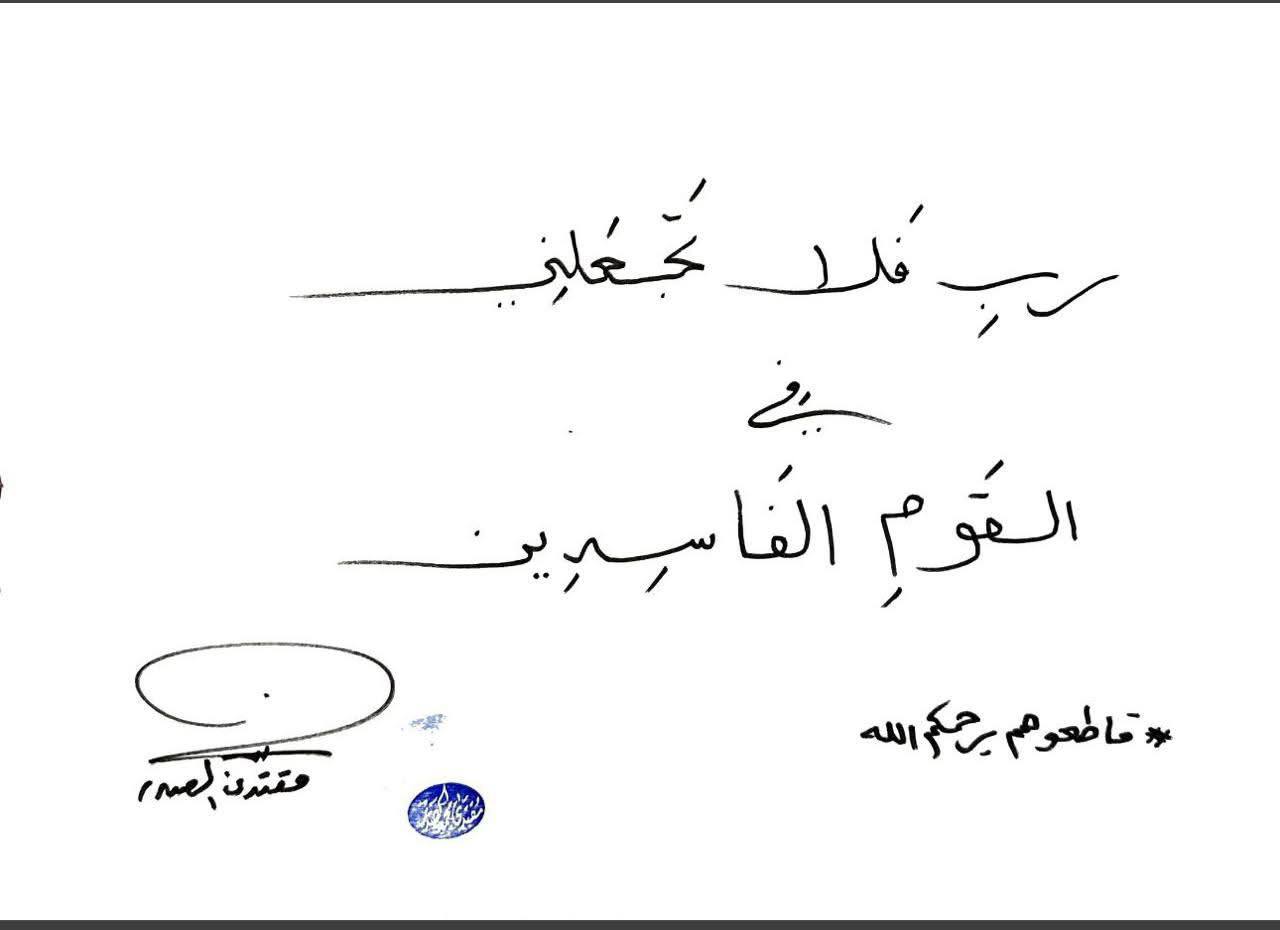 رَبِ فَلا تَجعَلنِي
فِي
القَومِ الفَاسِدِين
* قاطعوهم يرحمكم الله
مقتدى الصدر